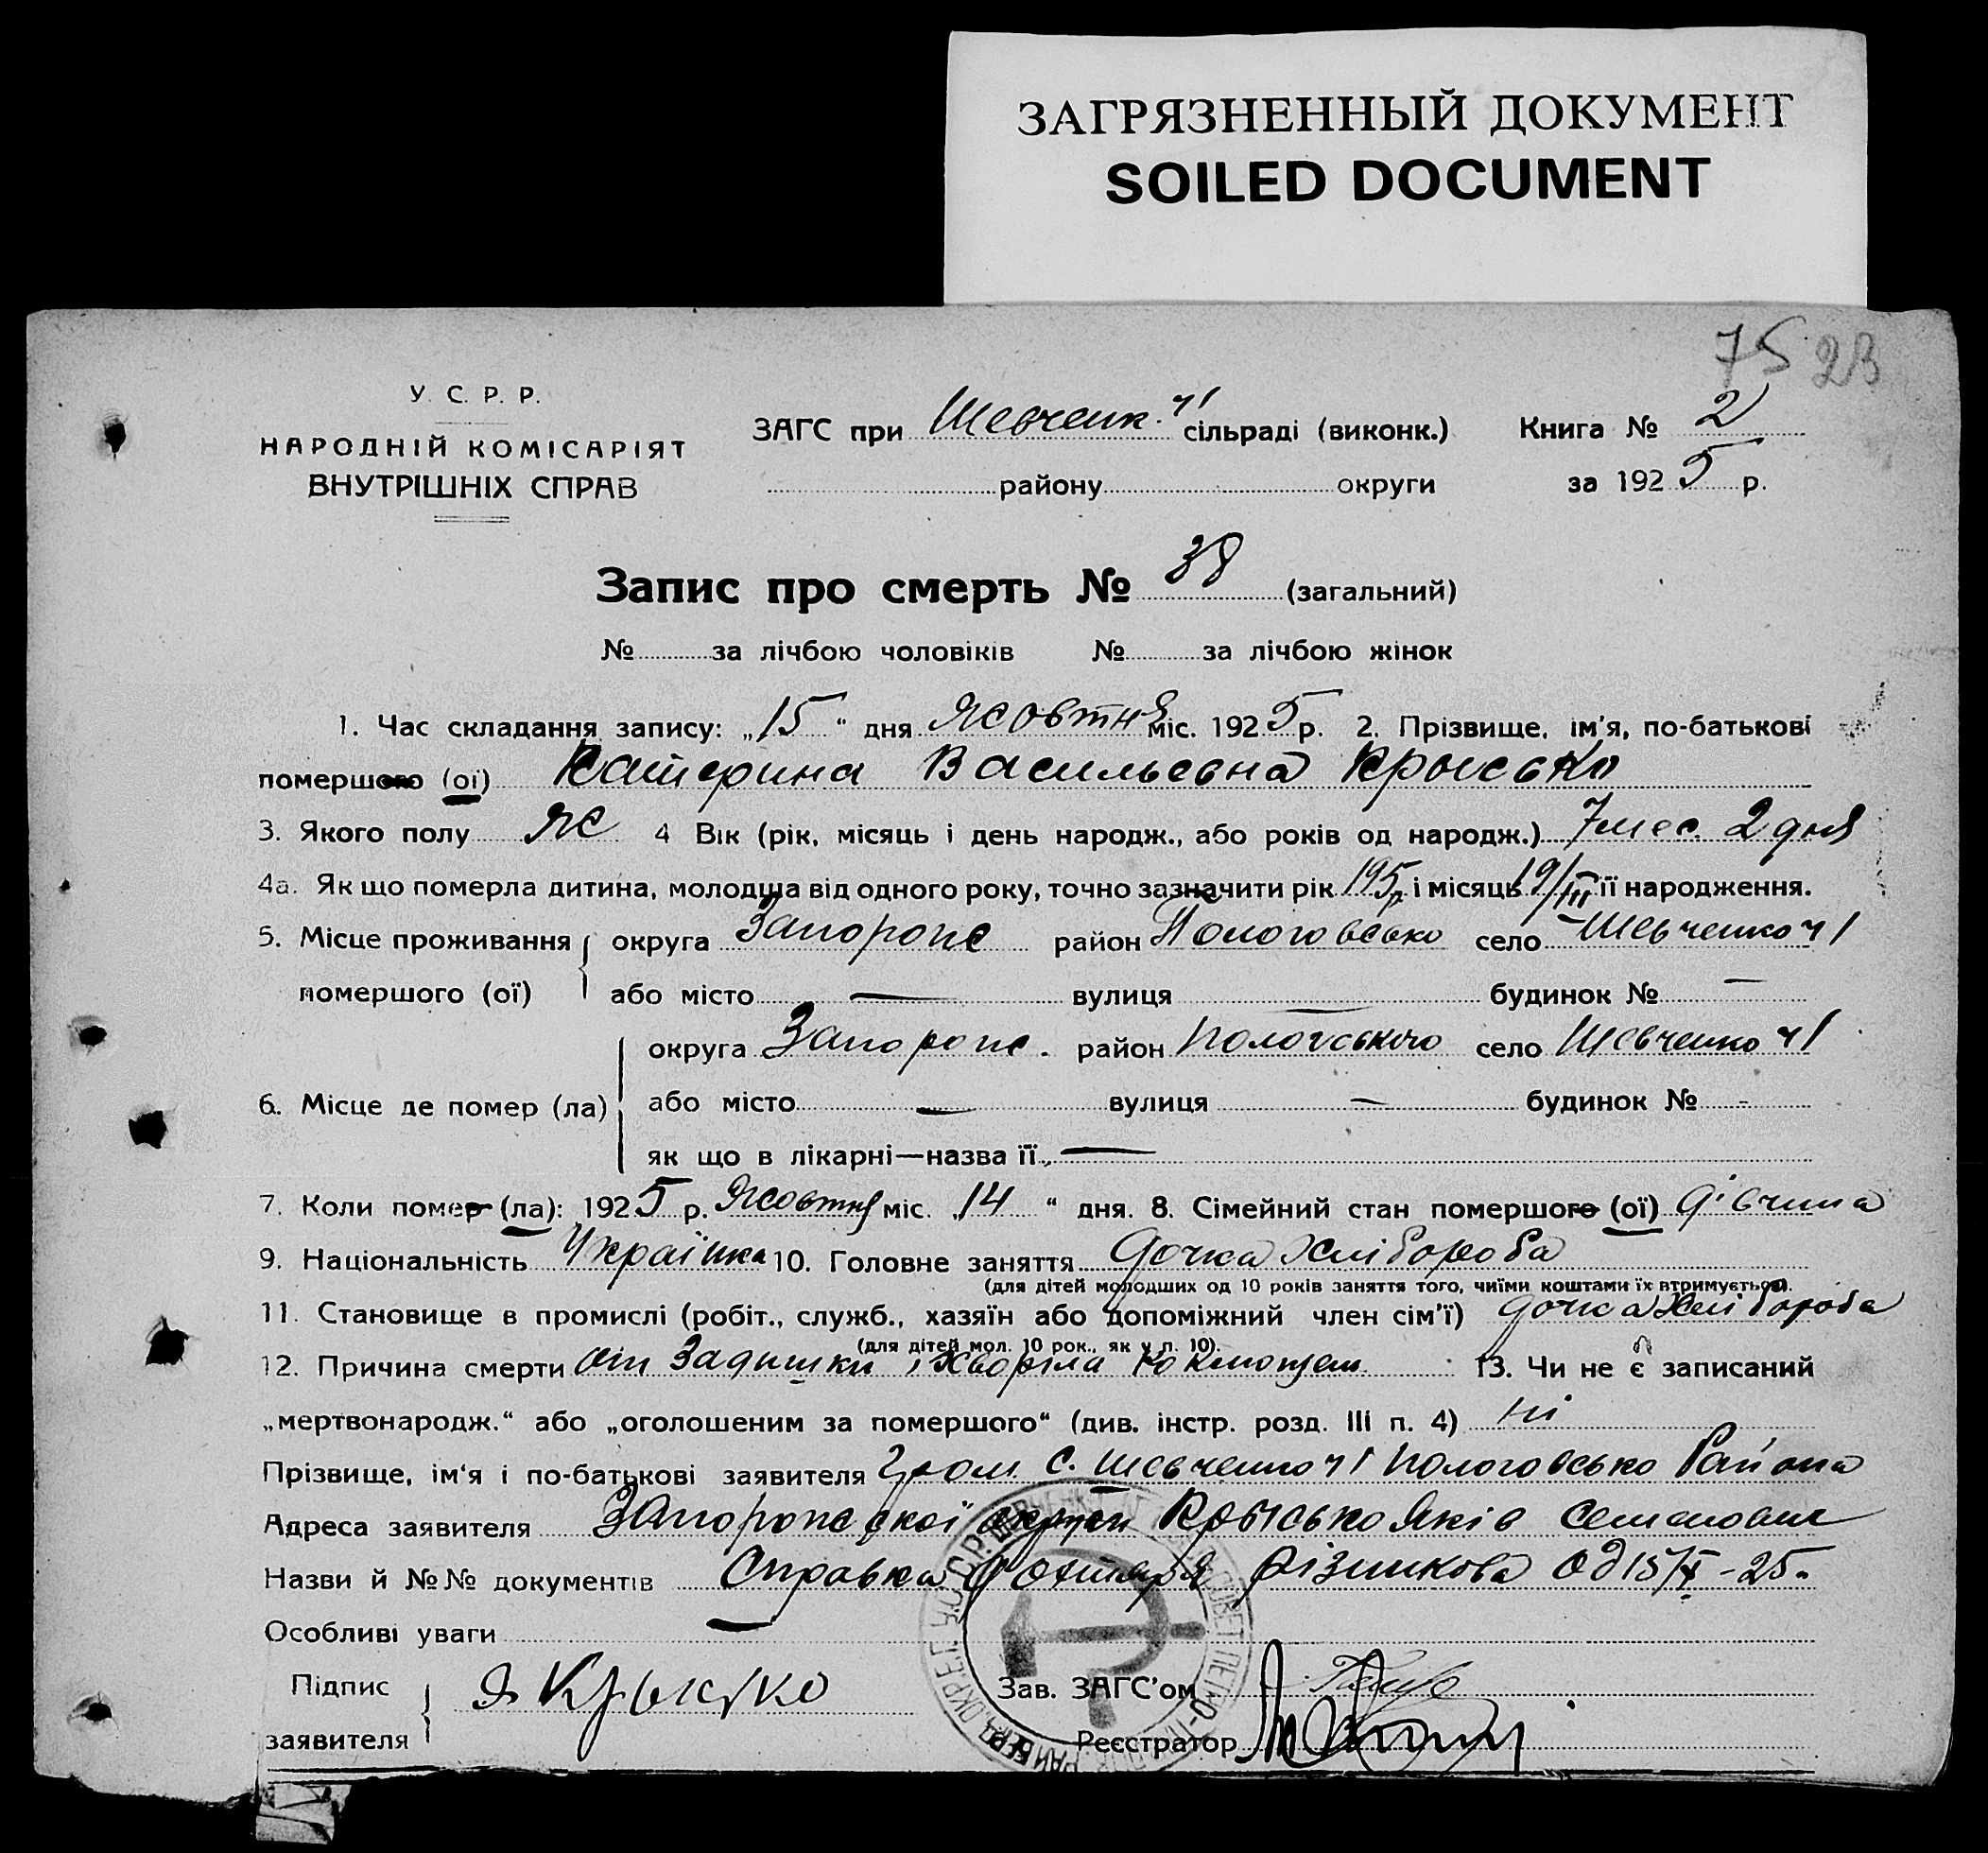 ЗАГРЯЗНЕННЫЙ ДОКУМЕНТ
SOILED DOCUMENT
75 23
У. С. Р. Р.
НАРОДНІЙ КОМІСАРІЯТ
ВНУТРІШНІХ СПРАВ
ЗАГС при Шевченк. ч1 сільраді (виконк.) Книга № 2
району округи за 1925 р.
Запис про смерть № 38 (загальний)
№ за лічбою чоловіків № за лічбою жінок
1. Час складання запису: „15“ дня Жовтня міс. 1925 р. 2. Прізвище, ім'я, по-батькові
помершого (ої) Катерина Васильевна Крысько
3. Якого полу Ж 4 Вік (рік, місяць і день народж., або років од народж.) 7 мес. 2 дня
4а. Як що померла дитина, молодша від одного року, точно зазначити рік 195р і місяць 19/III її народження.
5. Місце проживання помершого (ої) { округа Запорож район Пологовсько село Шевченко ч1
або місто — вулиця будинок № —
6. Місце де помер (ла) { округа Запорож. район Пологського село Шевченко ч1
або місто — вулиця — будинок № -
як що в лікарні—назва її —
7. Коли помер (ла): 1925 р. Жовтня міс. „14“ дня. 8. Сімейний стан помершого (ої) дівчина
9. Національність Українка 10. Головне заняття Дочка Хлібороба
(для дітей молодших од 10 років заняття того, чиїми коштами їх втримується).
11. Становище в промислі (робіт., служб., хазяїн або допоміжний член сім'ї) дочка Хлібороба
(для дітей мол. 10 рок., як у п. 10).
12. Причина смерти от Задишки, Хворіла 13. Чи не є записаний
„мертвонародж.“ або „оголошеним за помершого“ (див. інстр. розд. III п. 4) ні
Прізвище, ім'я і по-батькові заявителя Гром. с. Шевченко ч1 Пологовсько Району
Адреса заявителя Запорожської округи Крысько Яків Семенович
Назви й №№ документів Справка Різникова од 15/X -25.
Особливі уваги —
Підпис заявителя { Я Крысько
Зав. ЗАГС'ом
Реєстратор